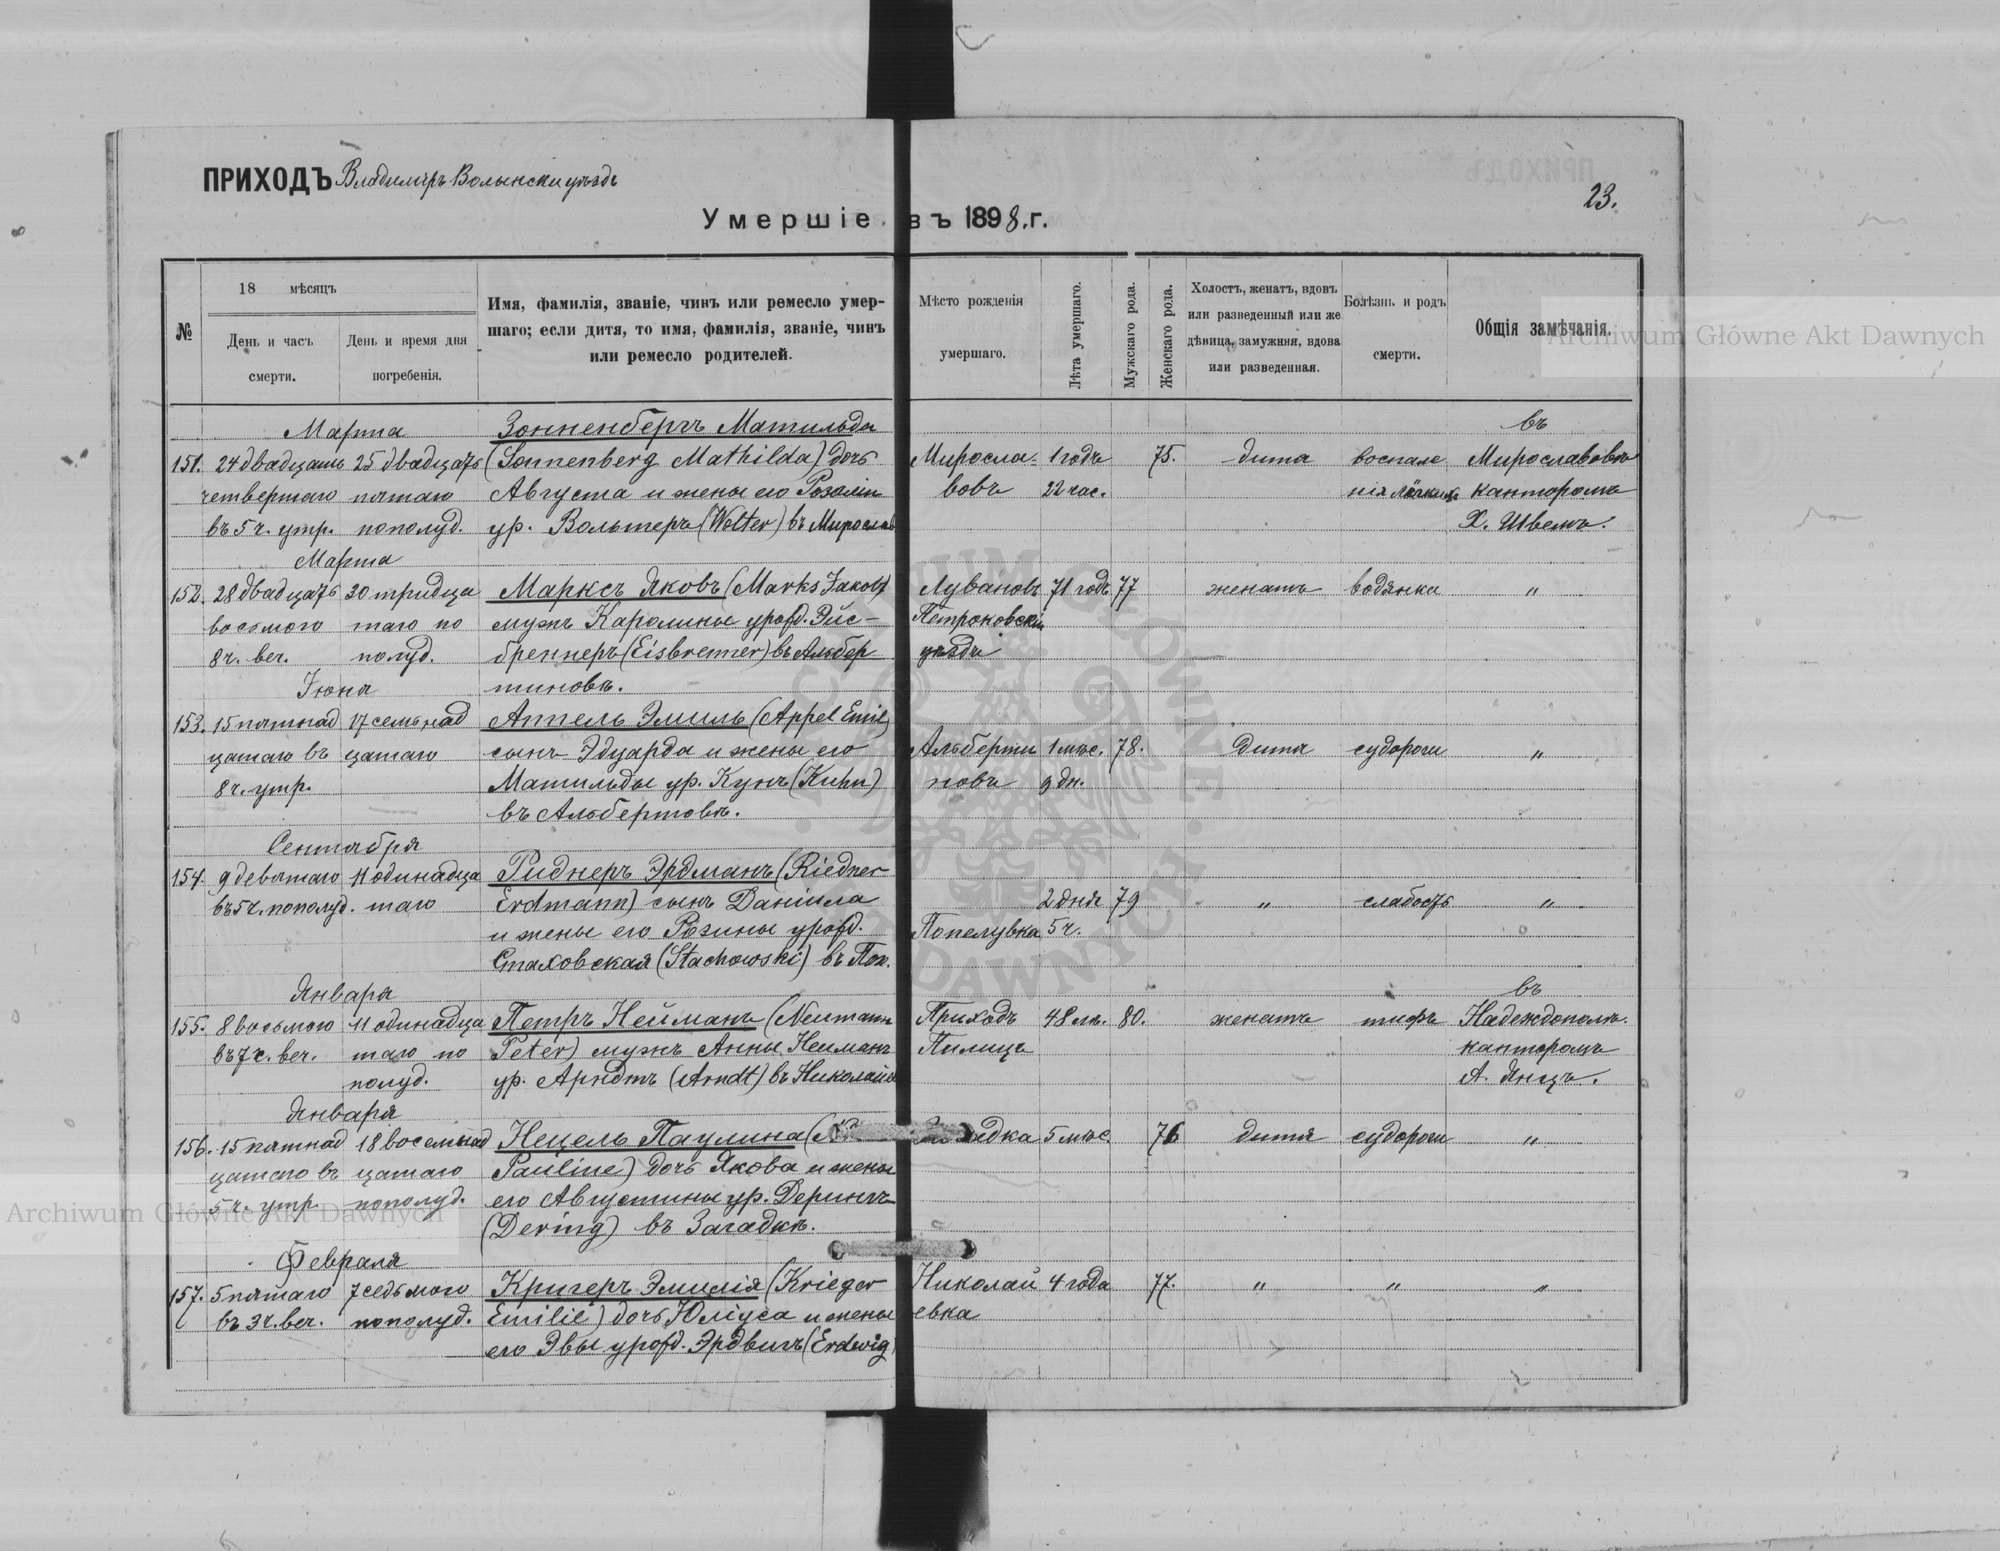 ПРИХОДЪ Владимiръ Волынски уѣздъ
23.
Умершiе въ 1898.г.
№
18 мѣсяцъ
День и часъ смерти.
День и время дня погребенiя.
Имя, фамилiя, званiе, чинъ или ремесло умер-
шаго; если дитя, то имя, фамилiя, званiе, чинъ
или ремесло родителей.
Мѣсто рожденiя
умершаго.
Лѣта умершаго.
Мужскаго рода.
Женскаго рода.
Холостъ, женатъ, вдовъ
или разведенный или же
дѣвица, замужняя, вдова
или разведенная.
Болѣзнь и родъ
смерти.
Общiя замѣчанiя.
Archiwum Główne Akt Dawnych
Марта Зонненбергъ Матильда въ
151. 24 двадцать 25 двадцать (Sonnenberg Mathilda) дочь Миросла- 1 годъ 75. дитя воспале Мирославовкѣ
четвертаго пятаго Августа и жены его Розалiи вовъ 22 час. нiя лёгкихъ канторомъ
въ 5 ч. утр. пополуд. ур. Вольтеръ (Wolter) въ Мирослав Х. Швемъ.
Марта
152. 28 двадцать 30 тридца Марксъ Яковъ (Marks Jakob) Лувановъ 71 годъ 77 женатъ водянка "
восьмого таго по мужъ Каролины урожд. Эйс- Петроковскiй
8 ч. веч. полуд. бреннеръ (Eisbrenner) въ Альбер уѣздъ
Iюня тиновѣ.
153. 15 пятнад 17 семьнад Аппель Эмиль (Appel Emil)
цатаго въ цатаго сынъ Эдуарда и жены его Альберти 1 мѣс. 78. Дитя судороги "
8 ч. утр. Матильды ур. Кунъ (Kuhn) новъ 9 дн.
въ Альбертовѣ.
Сентября
154. 9 девятаго 11 одинадца Риднеръ Эрдманъ (Riedner
въ 5 ч. пополуд. таго Erdmann) сынъ Данiила 2 дня 79 " слабость "
и жены его Розины урожд. Попелувка 5 ч.
Стаховская (Stachowski) въ Поп.
Января въ
155. 8 восьмого 11 одинадца Петръ Нейманъ (Neumann Приходъ 48 лѣ. 80. женатъ тифъ Надеждополѣ.
въ 7 ч. веч. таго по Peter) мужъ Анны Нейманъ Пилицъ канторомъ
полуд. ур. Арндтъ (Arndt) въ Николайе А. Янцъ.
Января
156. 15 пятнад 18 восемьнад Нецель Паулина 5 мѣс. 76 дитя судороги "
цатаго въ цатаго Pauline) дочь Якова и жены
5 ч. утр. пополуд. его Августины ур. Дерингъ
(Dering) въ Загадкѣ.
Archiwum Główne Akt Dawnych
Февраля
157. 5 пятаго 7 седьмого Кригеръ Эмилiя (Krieger Николай 4 года 77. " " "
въ 3 ч. веч. пополуд. Emilie) дочь Юлiуса и жены евка
его Эвы урожд. Эрдвигъ (Erdwig)